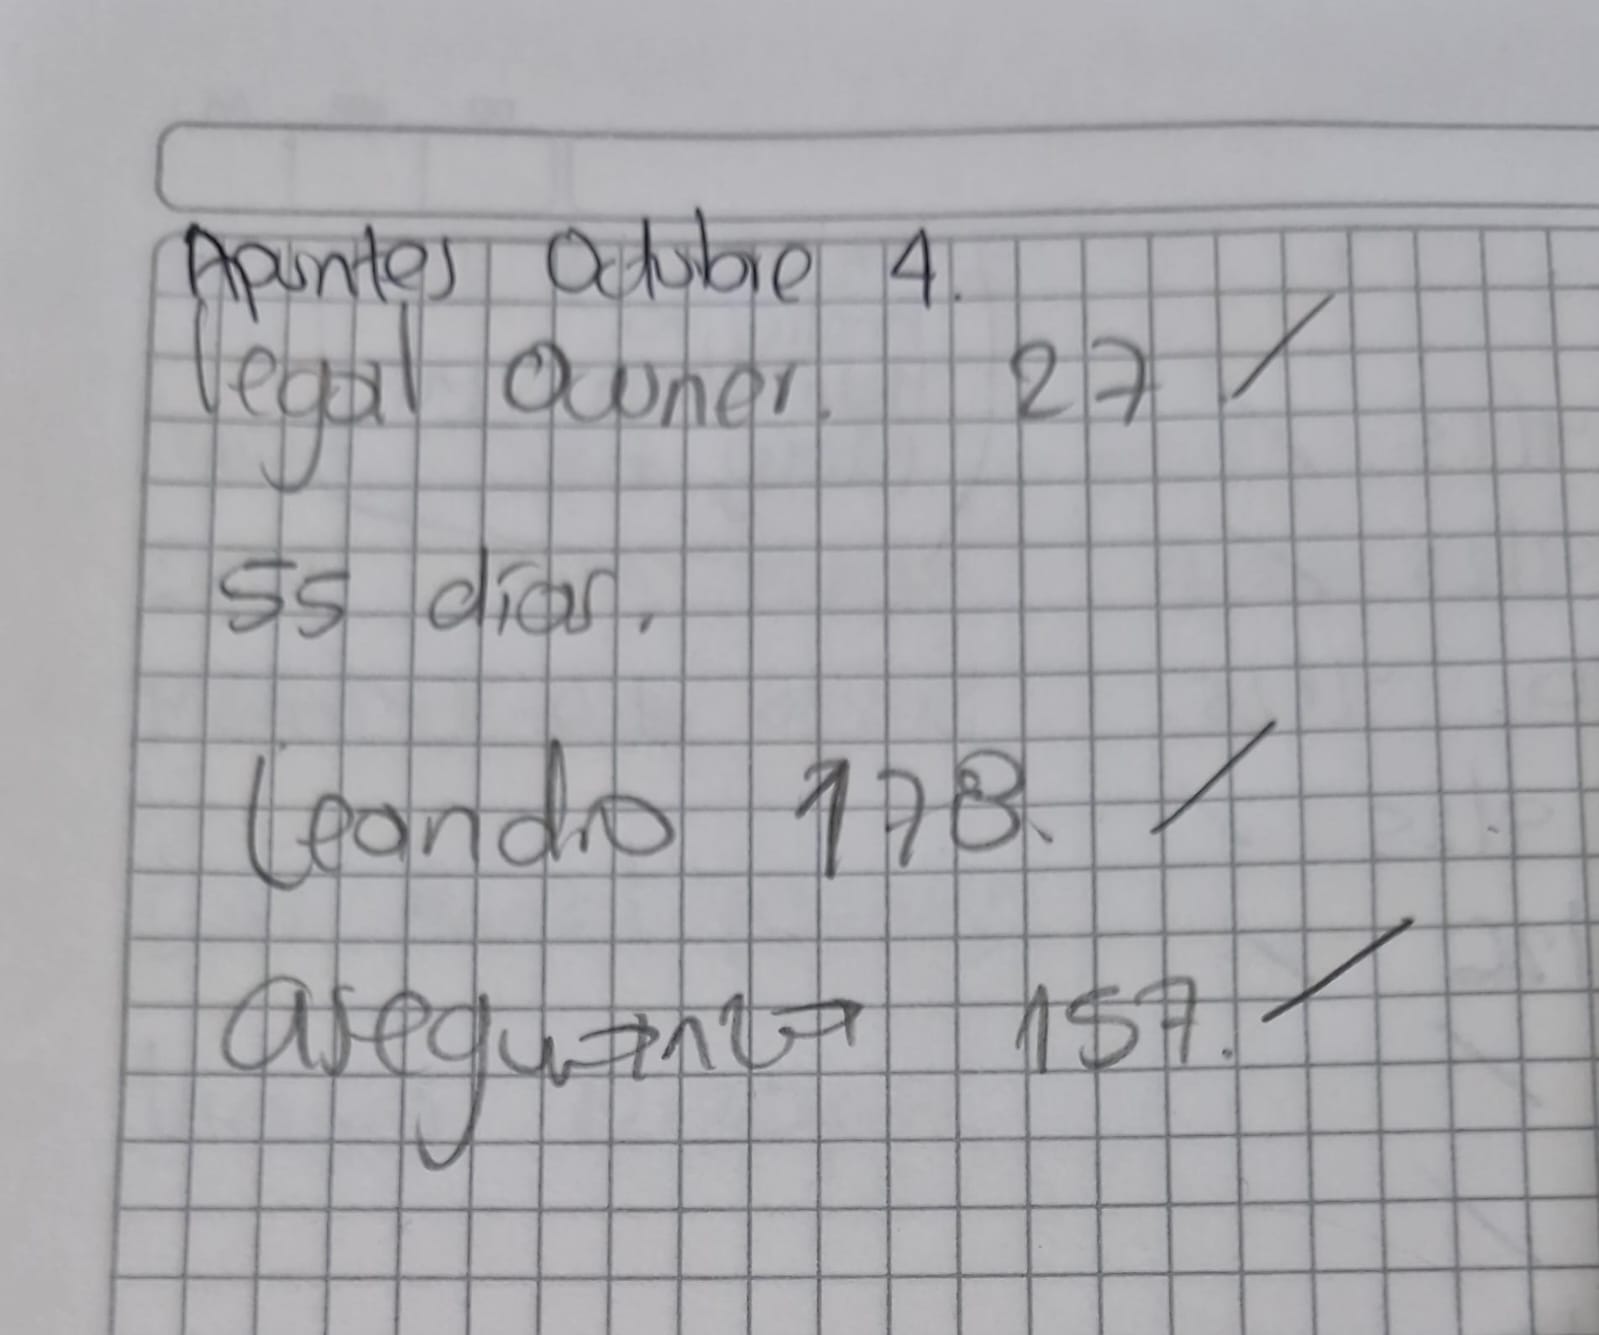 Apuntes Octubre 4.
legal Owner. 27 /
55 días.
Leandro 178. /
157. /